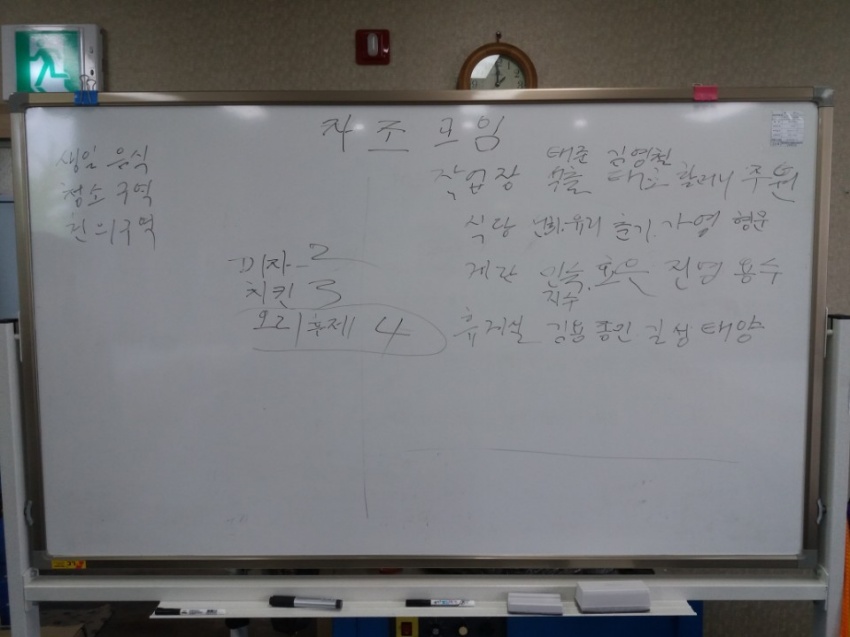 자조모임
생일 음식
청소 구역
건의구역
피자 2
치킨 3
오리훈제 4
태준 김영철
작업장 태호 할머니 주원
식당 유리 슬기 가영 형운
계단 민숙 진영 용수
지수
휴게실 김용 종민 길성 태양